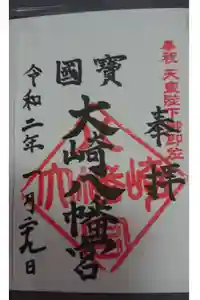 奉祝 天皇陛下御即位
奉拝
國寶
大崎八幡宮
令和二年一月廿九日